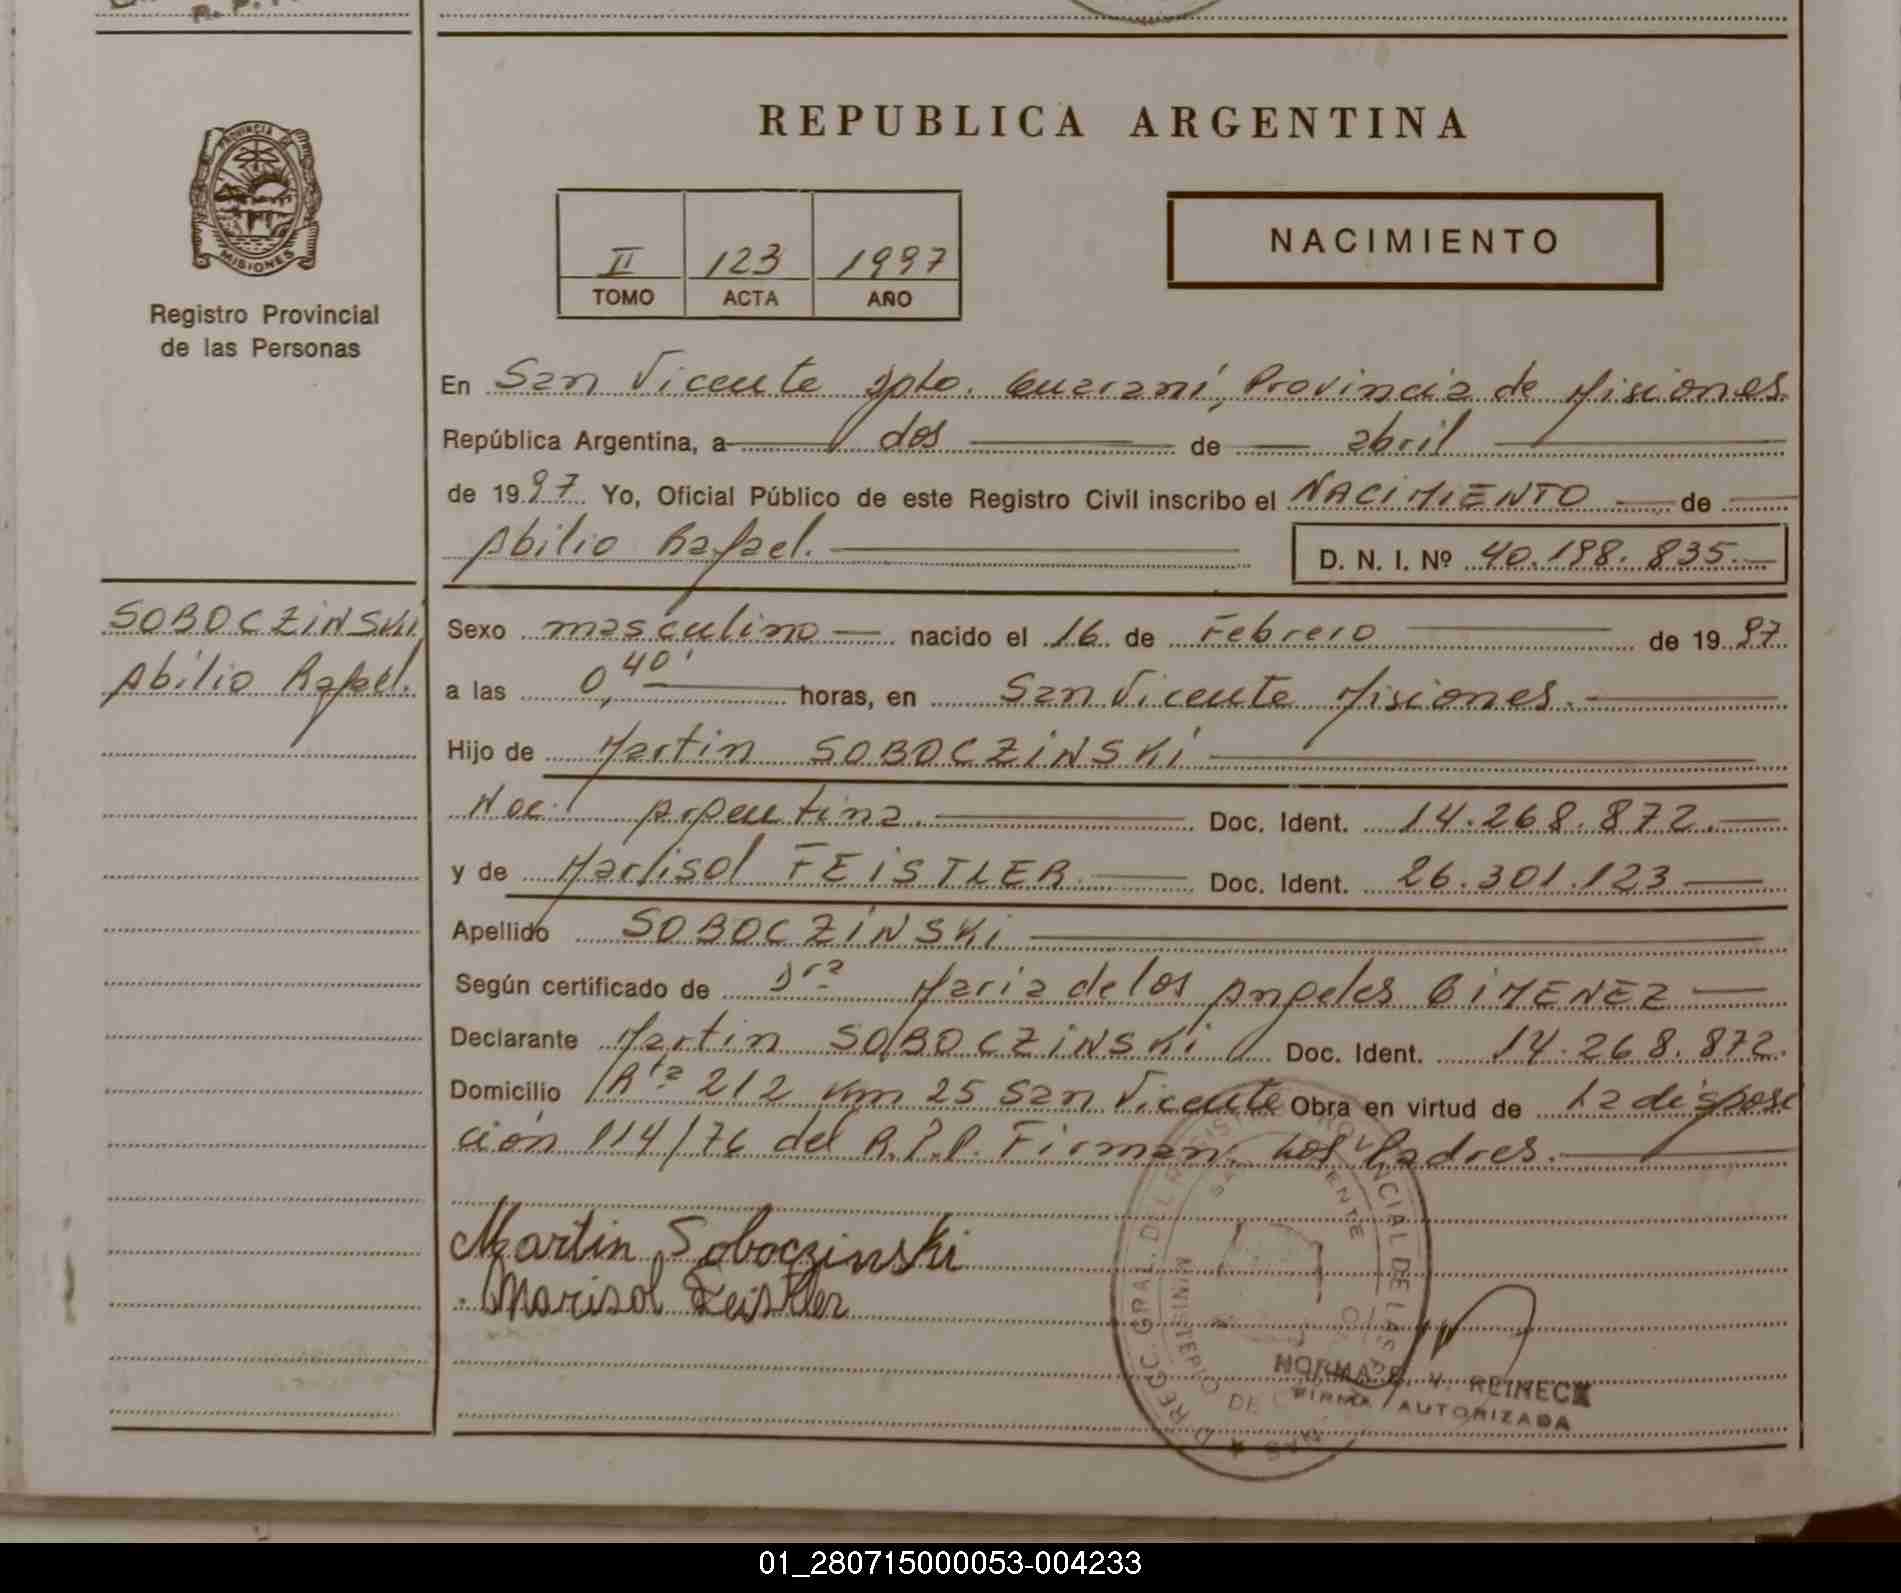 REPUBLICA ARGENTINA
PROVINCIA DE
MISIONES
Registro Provincial
de las Personas
II 123 1997
TOMO ACTA AÑO
NACIMIENTO
En San Vicente Dpto. Guaraní, Provincia de Misiones
República Argentina, a dos de abril
de 1997 Yo, Oficial Público de este Registro Civil inscribo el NACIMIENTO de
Abilio Rafael. D. N. I. Nº 40.198.835.-
SOBOCZINSKI
Abilio Rafael.
Sexo masculino nacido el 16 de Febrero de 1997
a las 0,40' horas, en San Vicente Misiones.
Hijo de Martin SOBOCZINSKI
Nac. Argentina. Doc. Ident. 14.268.872.
y de Marisol FEISTLER Doc. Ident. 26.301.123
Apellido SOBOCZINSKI
Según certificado de Dra Maria de los Angeles GIMENEZ
Declarante Martin SOBOCZINSKI Doc. Ident. 14.268.872.
Domicilio Rta 212 Km 25 San Vicente Obra en virtud de la disposi
ción 114/76 del R.P.P. Firman Los Padres.
Martin Soboczinski
Marisol Feistler
NORMA V. REINECK
FIRMA AUTORIZADA
01_280715000053-004233